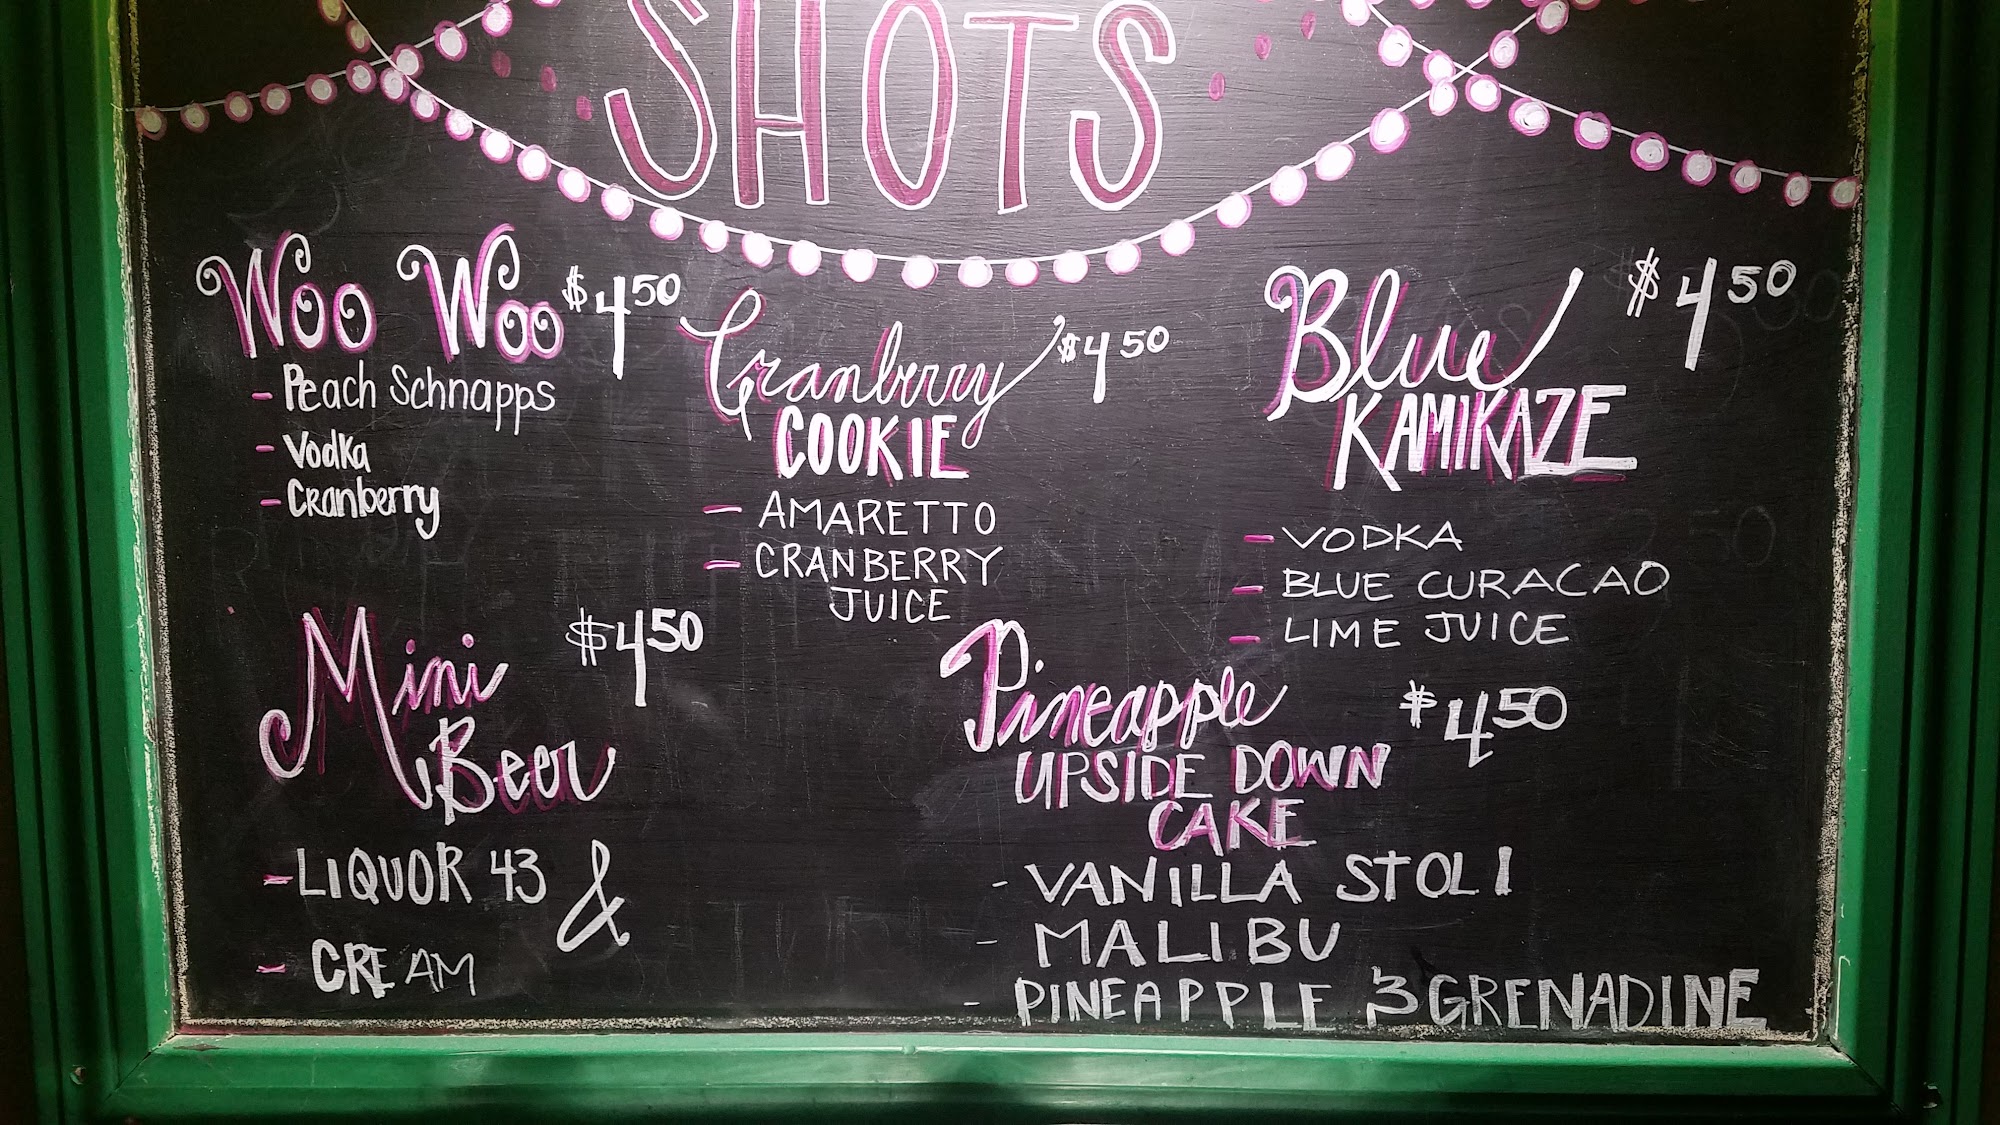 SHOTS
Woo Woo $4.50
- Peach Schnapps
- Vodka
- Cranberry
Cranberry $4.50
COOKIE
- AMARETTO
- CRANBERRY
JUICE
Blue $4.50
KAMIKAZE
- VODKA
- BLUE CURACAO
- LIME JUICE
Mini $4.50
Beer
- LIQUOR 43 &
- CREAM
Pineapple $4.50
UPSIDE DOWN
CAKE
- VANILLA STOLI
- MALIBU
- PINEAPPLE & GRENADINE